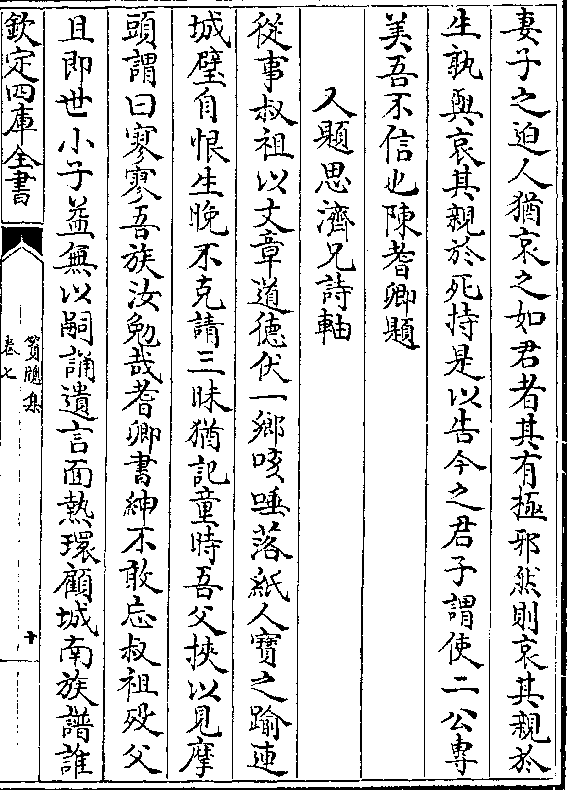 妻子之迫人猶哀之如君者其有極邪然則哀其親於
生孰與哀其親於死持是以告今之君子謂使二公專
美吾不信也陳耆卿題
又題思濟兄詩軸
從事叔祖以文章道德伏一鄉咳唾落紙人寶之踰連
城璧自恨生晚不克請三昧猶記童時吾父挾以見摩
頭謂曰寥寥吾族汝勉哉耆卿書紳不敢忘叔祖歿父
且即世小子益無以嗣誦遺言面熱環顧城南族譜誰
欽定四庫全書
篔牕集
卷七
十